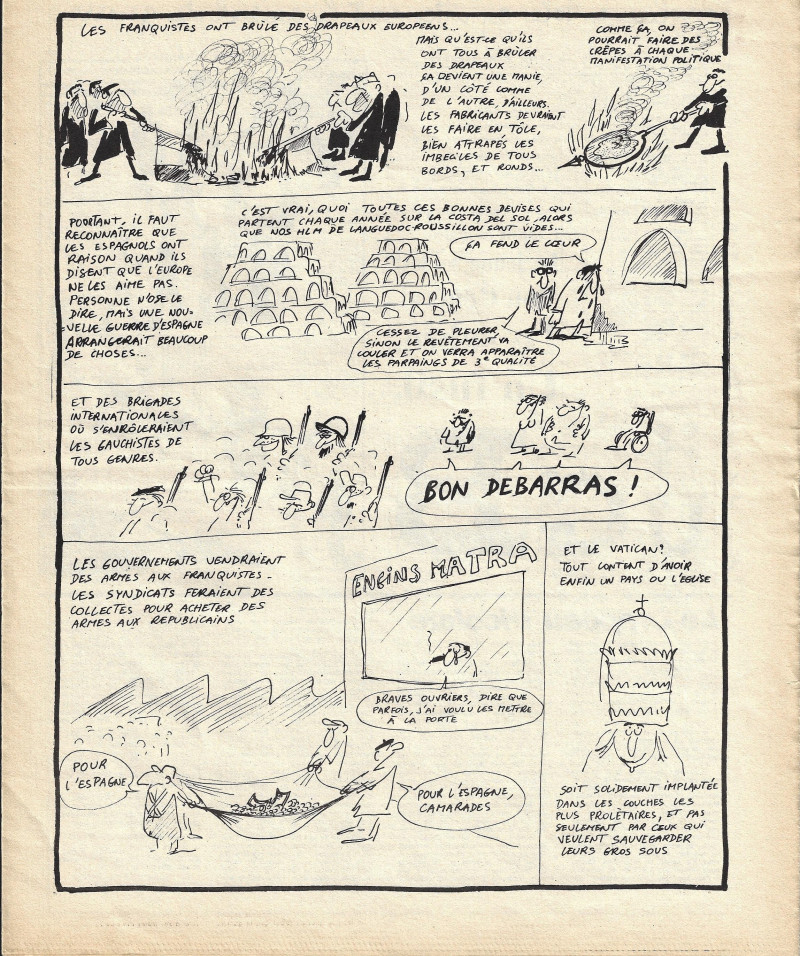 LES FRANQUISTES ONT BRÛLÉ DES DRAPEAUX EUROPEENS...
MAIS QU'EST-CE QU'ILS
ONT TOUS À BRÛLER
DES DRAPEAUX
ÇA DEVIENT UNE MANIE,
D'UN CÔTÉ COMME
DE L'AUTRE, D'AILLEURS.
LES FABRICANTS DEVRAIENT
LES FAIRE EN TÔLE,
BIEN ATTRAPÉS LES
IMBECILES DE TOUS
BORDS, ET RONDS...
COMME ÇA, ON
POURRAIT FAIRE DES
CRÊPES À CHAQUE
MANIFESTATION POLITIQUE
POURTANT, IL FAUT
RECONNAÎTRE QUE
LES ESPAGNOLS ONT
RAISON QUAND ILS
DISENT QUE L'EUROPE
NE LES AIME PAS.
PERSONNE N'OSE LE
DIRE, MAIS UNE NOU-
VELLE GUERRE D'ESPAGNE
ARRANGERAIT BEAUCOUP
DE CHOSES...
C'EST VRAI, QUOI TOUTES CES BONNES DEVISES QUI
PARTENT CHAQUE ANNÉE SUR LA COSTA DEL SOL, ALORS
QUE NOS HLM DE LANGUEDOC-ROUSSILLON SONT VIDES...
ÇA FEND LE CŒUR
CESSEZ DE PLEURER,
SINON LE REVÊTEMENT VA
COULER ET ON VERRA APPARAÎTRE
LES PARPAINGS DE 3e QUALITÉ
ET DES BRIGADES
INTERNATIONALES
OÙ S'ENRÔLERAIENT
LES GAUCHISTES DE
TOUS GENRES.
BON DEBARRAS !
LES GOUVERNEMENTS VENDRAIENT
DES ARMES AUX FRANQUISTES -
LES SYNDICATS FERAIENT DES
COLLECTES POUR ACHETER DES
ARMES AUX REPUBLICAINS
ENGINS MATRA
BRAVES OUVRIERS, DIRE QUE
PARFOIS, J'AI VOULU LES METTRE
À LA PORTE
POUR
L'ESPAGNE
POUR L'ESPAGNE,
CAMARADES
ET LE VATICAN?
TOUT CONTENT D'AVOIR
ENFIN UN PAYS OU L'EGLISE
SOIT SOLIDEMENT IMPLANTÉE
DANS LES COUCHES LES
PLUS PROLÉTAIRES, ET PAS
SEULEMENT PAR CEUX QUI
VEULENT SAUVEGARDER
LEURS GROS SOUS